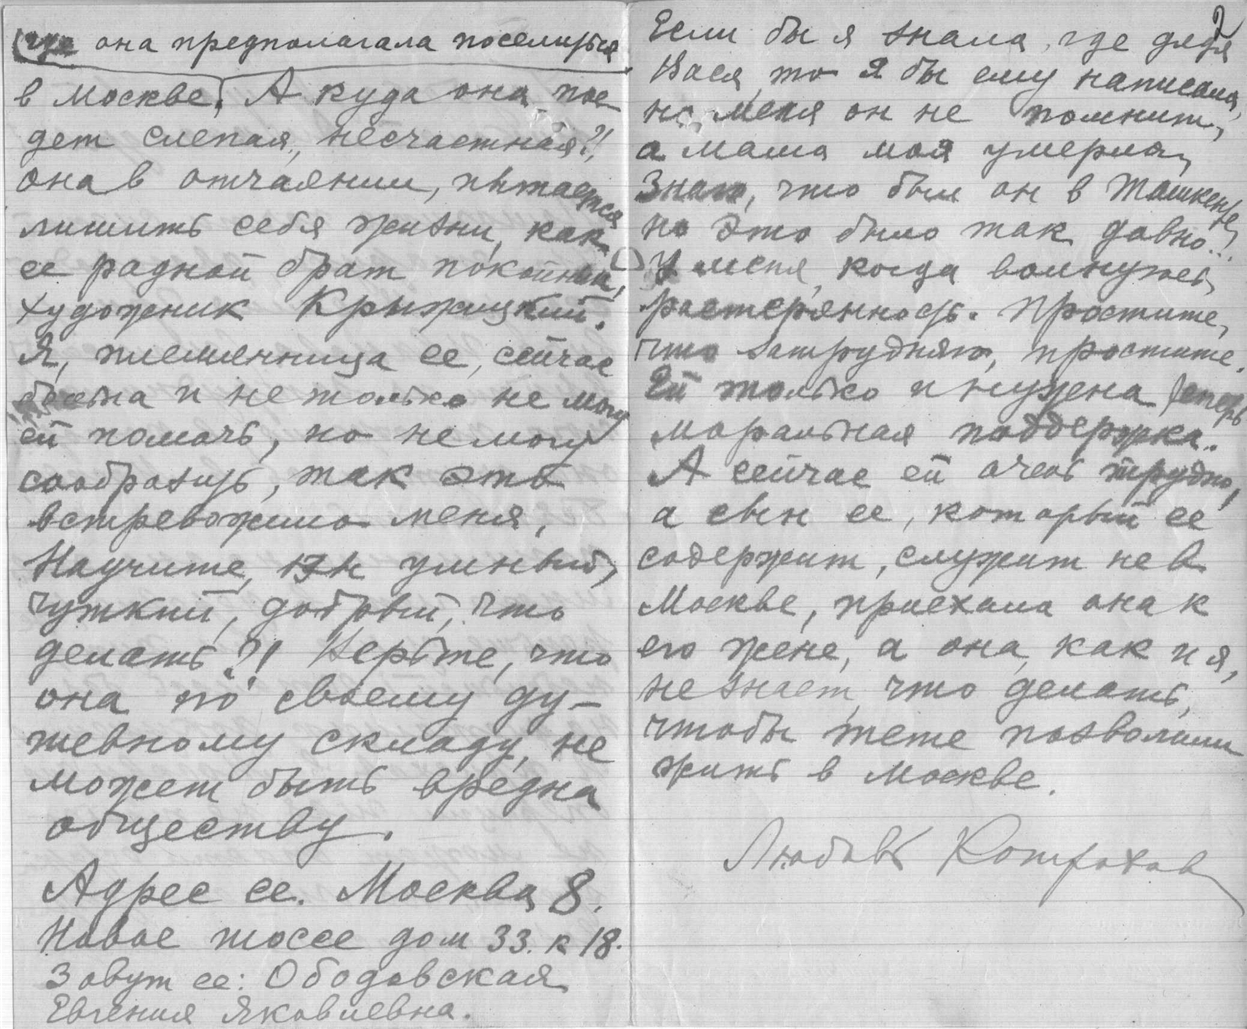 (где она предполагала поселиться
в Москве. А куда она пое
дет слепая, несчастная?!,
она в отчаянии, пытается
лишить себя жизни, как
ее радной брат покойный,
художник Крыжицкий.
Я, племенница ее, сейчас
больна и не только не могу
ей помочь, но не могу
сообразить, так это
встревожило меня,
Научите, умный,
чуткий, добрый, что
делать?! Верьте, что
она по своему ду-
шевному складу, не
может быть вредна
обществу.
Адрес ее. Москва 8.
Новое шоссе дом 33. к 18.
Зовут ее: Ободовская
Евгения Яковлевна.
2
Если бы я знала, где дядя
Вася, то я бы ему написала,
но меня он не помнит,
а мама моя умерла,
Знаю, что был он в Ташкенте,
но это было так давно...
У меня, когда волнуюсь,
растерянность. Простите,
что затрудняю, простите.
Ей только и нужена теперь
моральная поддержка.
А сейчас ей очень трудно,
а сын ее, который ее
содержит, служит не в
Москве, приехала она к
его жене, а она, как и я,
не знает, что делать,
чтобы тете позволили
жить в Москве.
Любовь